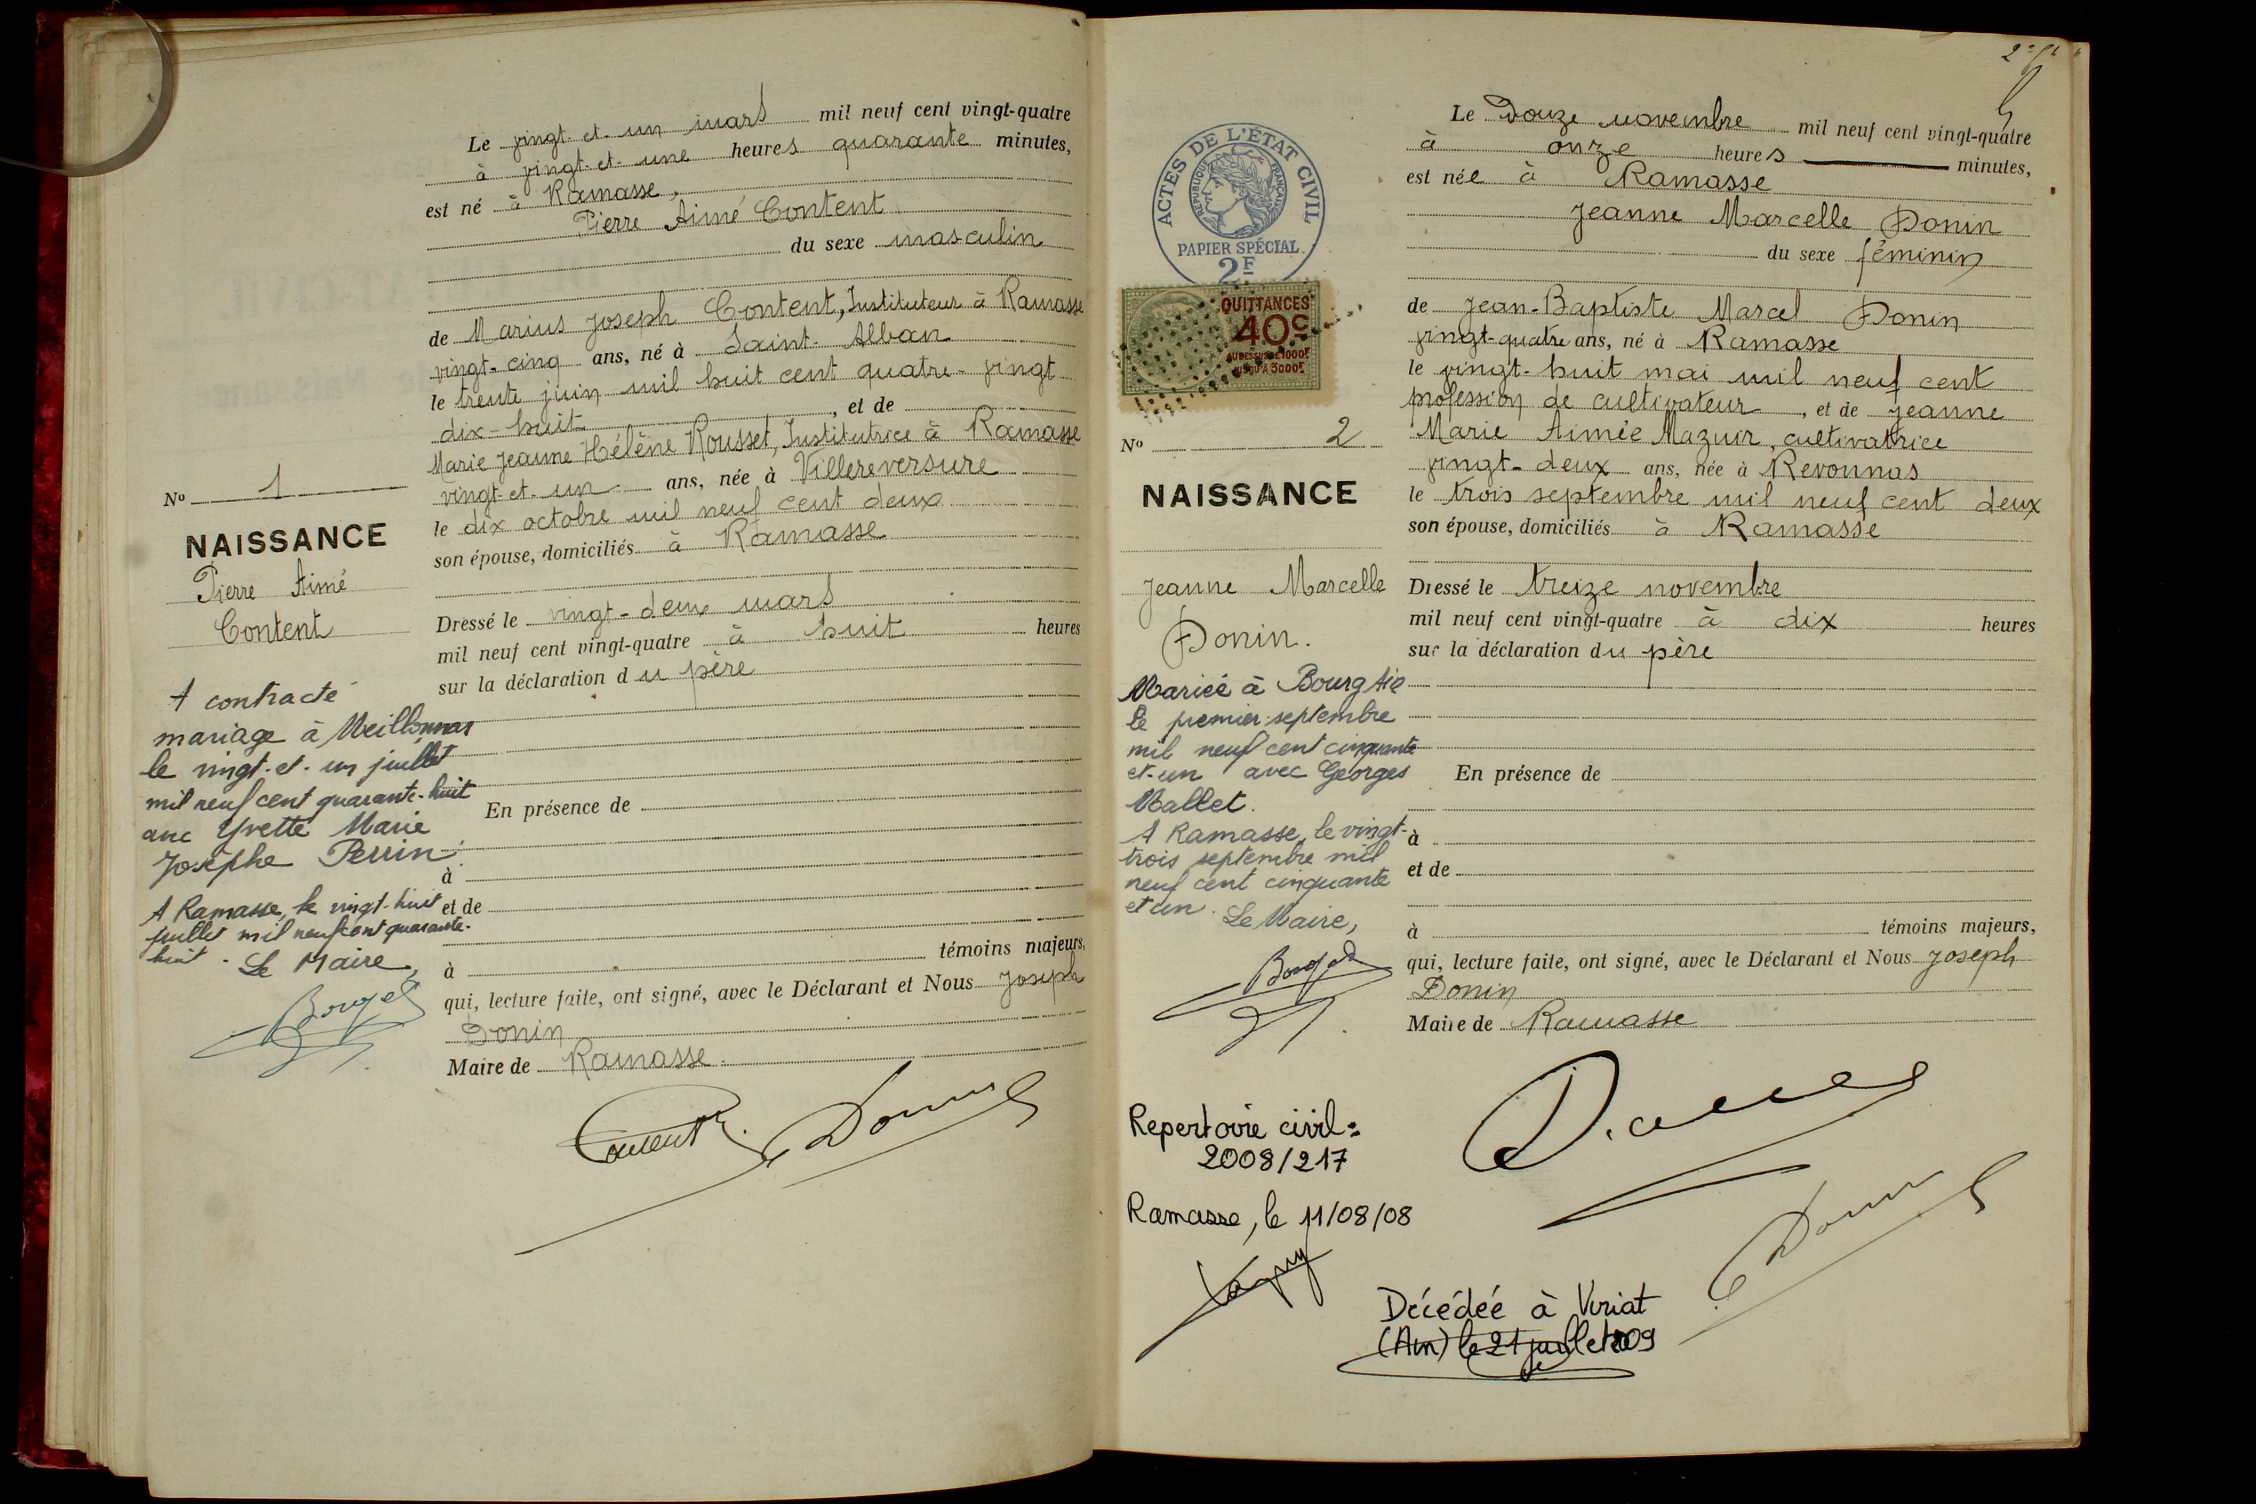 Le vingt-et-un mars mil neuf cent vingt-quatre
à vingt-et-une heures quarante minutes,
est né à Ramasse,
Pierre Aimé Content
du sexe masculin
de Marius Joseph Content, Instituteur à Ramasse
vingt-cinq ans, né à Saint-Alban
le trente juin mil huit cent quatre-vingt
dix-huit, et de
Marie Jeanne Hélène Rousset, Institutrice à Ramasse
vingt-et-un ans, née à Villereversure
le dix octobre mil neuf cent deux
son épouse, domiciliés à Ramasse
Dressé le vingt-deux mars
mil neuf cent vingt-quatre à huit heures
sur la déclaration du père
En présence de
à
et de
à témoins majeurs,
qui, lecture faite, ont signé, avec le Déclarant et Nous Joseph
Donin
Maire de Ramasse
Content Donin
No 1
NAISSANCE
Pierre Aimé
Content
A contracté
mariage à Meillonnas
le vingt-et-un juillet
mil neuf cent quarante-huit
avec Yvette Marie
Josèphe Perrin.
A Ramasse, le vingt-huit
juillet mil neuf cent quarante-
huit. Le Maire,
ACTES DE L'ÉTAT CIVIL
RÉPUBLIQUE FRANÇAISE
PAPIER SPÉCIAL
2F
QUITTANCES
40c
AU DESSUS DE 1000F
JUSQU'A 3000F
No 2
NAISSANCE
Jeanne Marcelle
Donin.
Mariée à Bourg Ain
le premier septembre
mil neuf cent cinquante
et-un avec Georges
Mallet.
A Ramasse, le vingt-
trois septembre mil
neuf cent cinquante
et un. Le Maire,
Repertoire civil:
2008/217
Ramasse, le 11/08/08
Le Douze novembre mil neuf cent vingt-quatre
à onze heures minutes,
est née à Ramasse
Jeanne Marcelle Donin
du sexe féminin
de Jean-Baptiste Marcel Donin
vingt-quatre ans, né à Ramasse
le vingt-huit mai mil neuf cent
profession de cultivateur, et de Jeanne
Marie Aimée Mazuir, cultivatrice
vingt-deux ans, née à Revonnas
le trois septembre mil neuf cent deux
son épouse, domiciliés à Ramasse
Dressé le treize novembre
mil neuf cent vingt-quatre à dix heures
sur la déclaration du père
En présence de
à
et de
à témoins majeurs,
qui, lecture faite, ont signé, avec le Déclarant et Nous Joseph
Donin
Maire de Ramasse
Donin
Décédée à Viriat
(Ain) le 21 juillet 2009